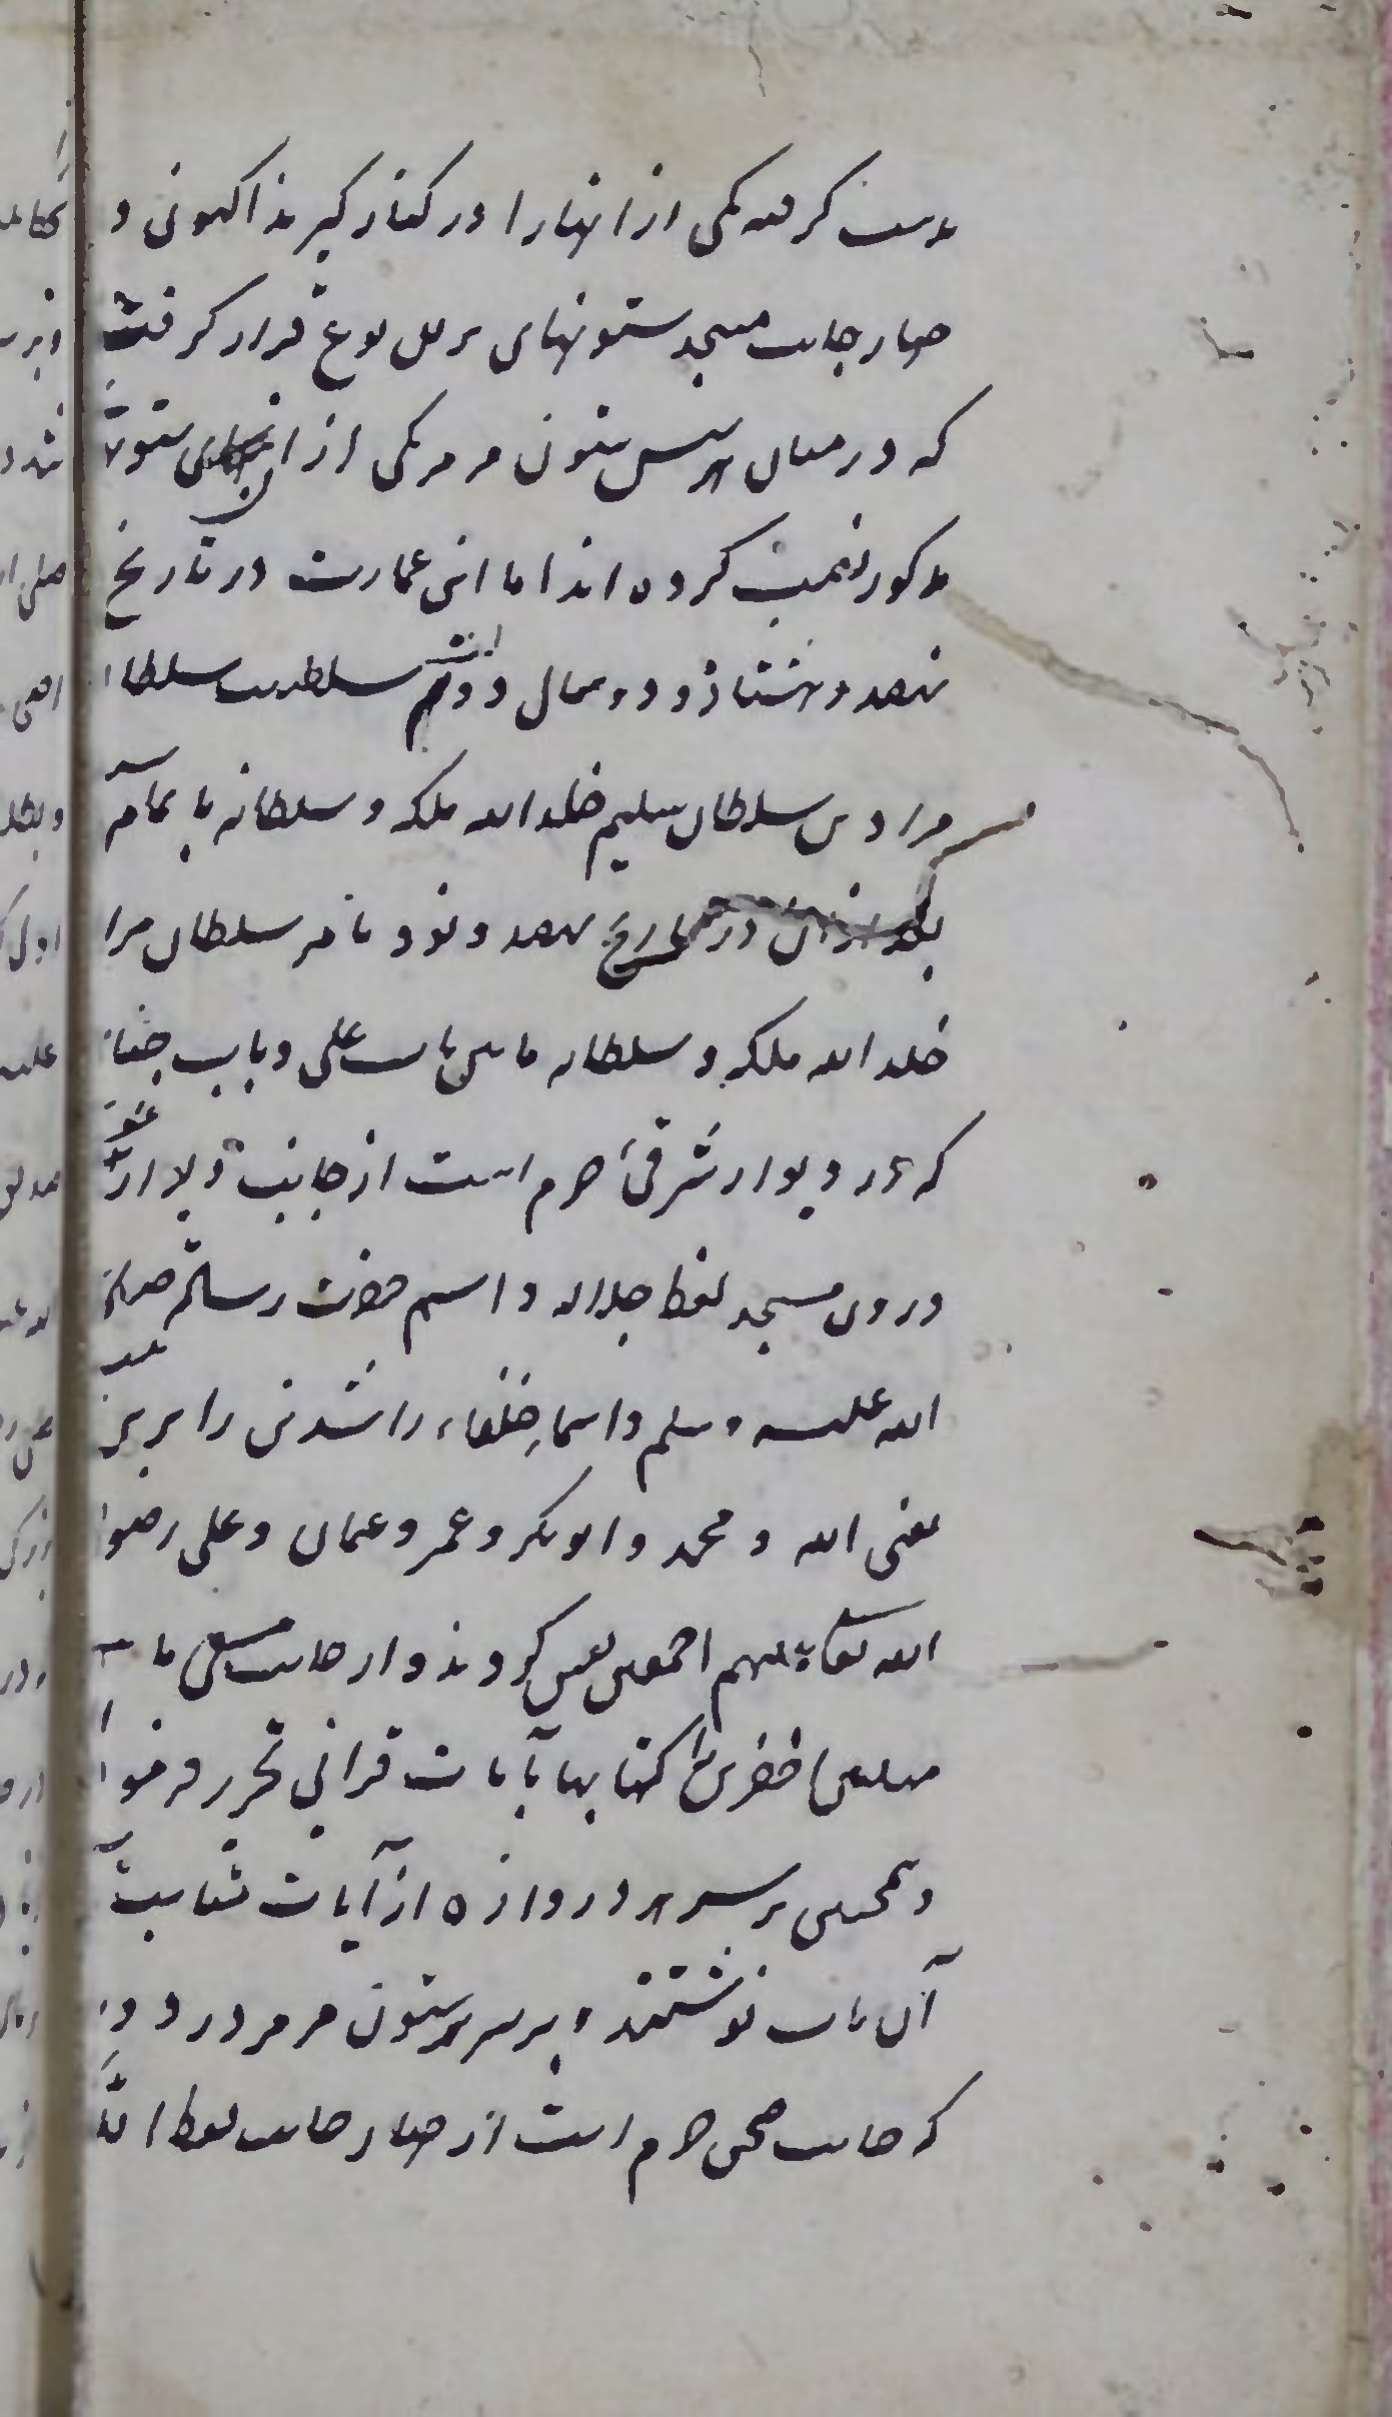 دست کرفته یکی از انها را در کنار کیرند اکنون در
چهار جانب مسجد ستونهای برین نوع قرار کرفت
که در میان هر شش ستون مرمر یکی از ان ستونهای
مذکور نصب کرده اند اما این عمارت در تاریخ
نهصد و هشتاد و دو سال دویم سلطنت سلطان
مراد بن سلطان سلیم خلد الله ملکه و سلطانه با تمام
بعد از ان در تاریخ نهصد و نود بامر سلطان مراد
خلد الله ملکه و سلطانه مابین باب علی و باب جنایز
که در دیوار شرقی حرم است از جانب
درون مسجد لفظ جلاله و اسم حضرت رسالت صلی
الله علیه و سلم و اسماء خلفاء راشدین را بر
یعنی الله و محمد و ابوبکر و عمر و عثمان و علی رضوان
الله تعالی علیهم اجمعین نقش کردند و از جانب مسعی ما
میلین اخضرین کتابها بآیات قرانی تحریر فرمود
و همچنین بر سر هر دروازه از آیات مناسب
آن باب نوشتند و بر سر هر ستون مرمر در دور
که جانب صحن حرم است از چهار جانب لفظ الله